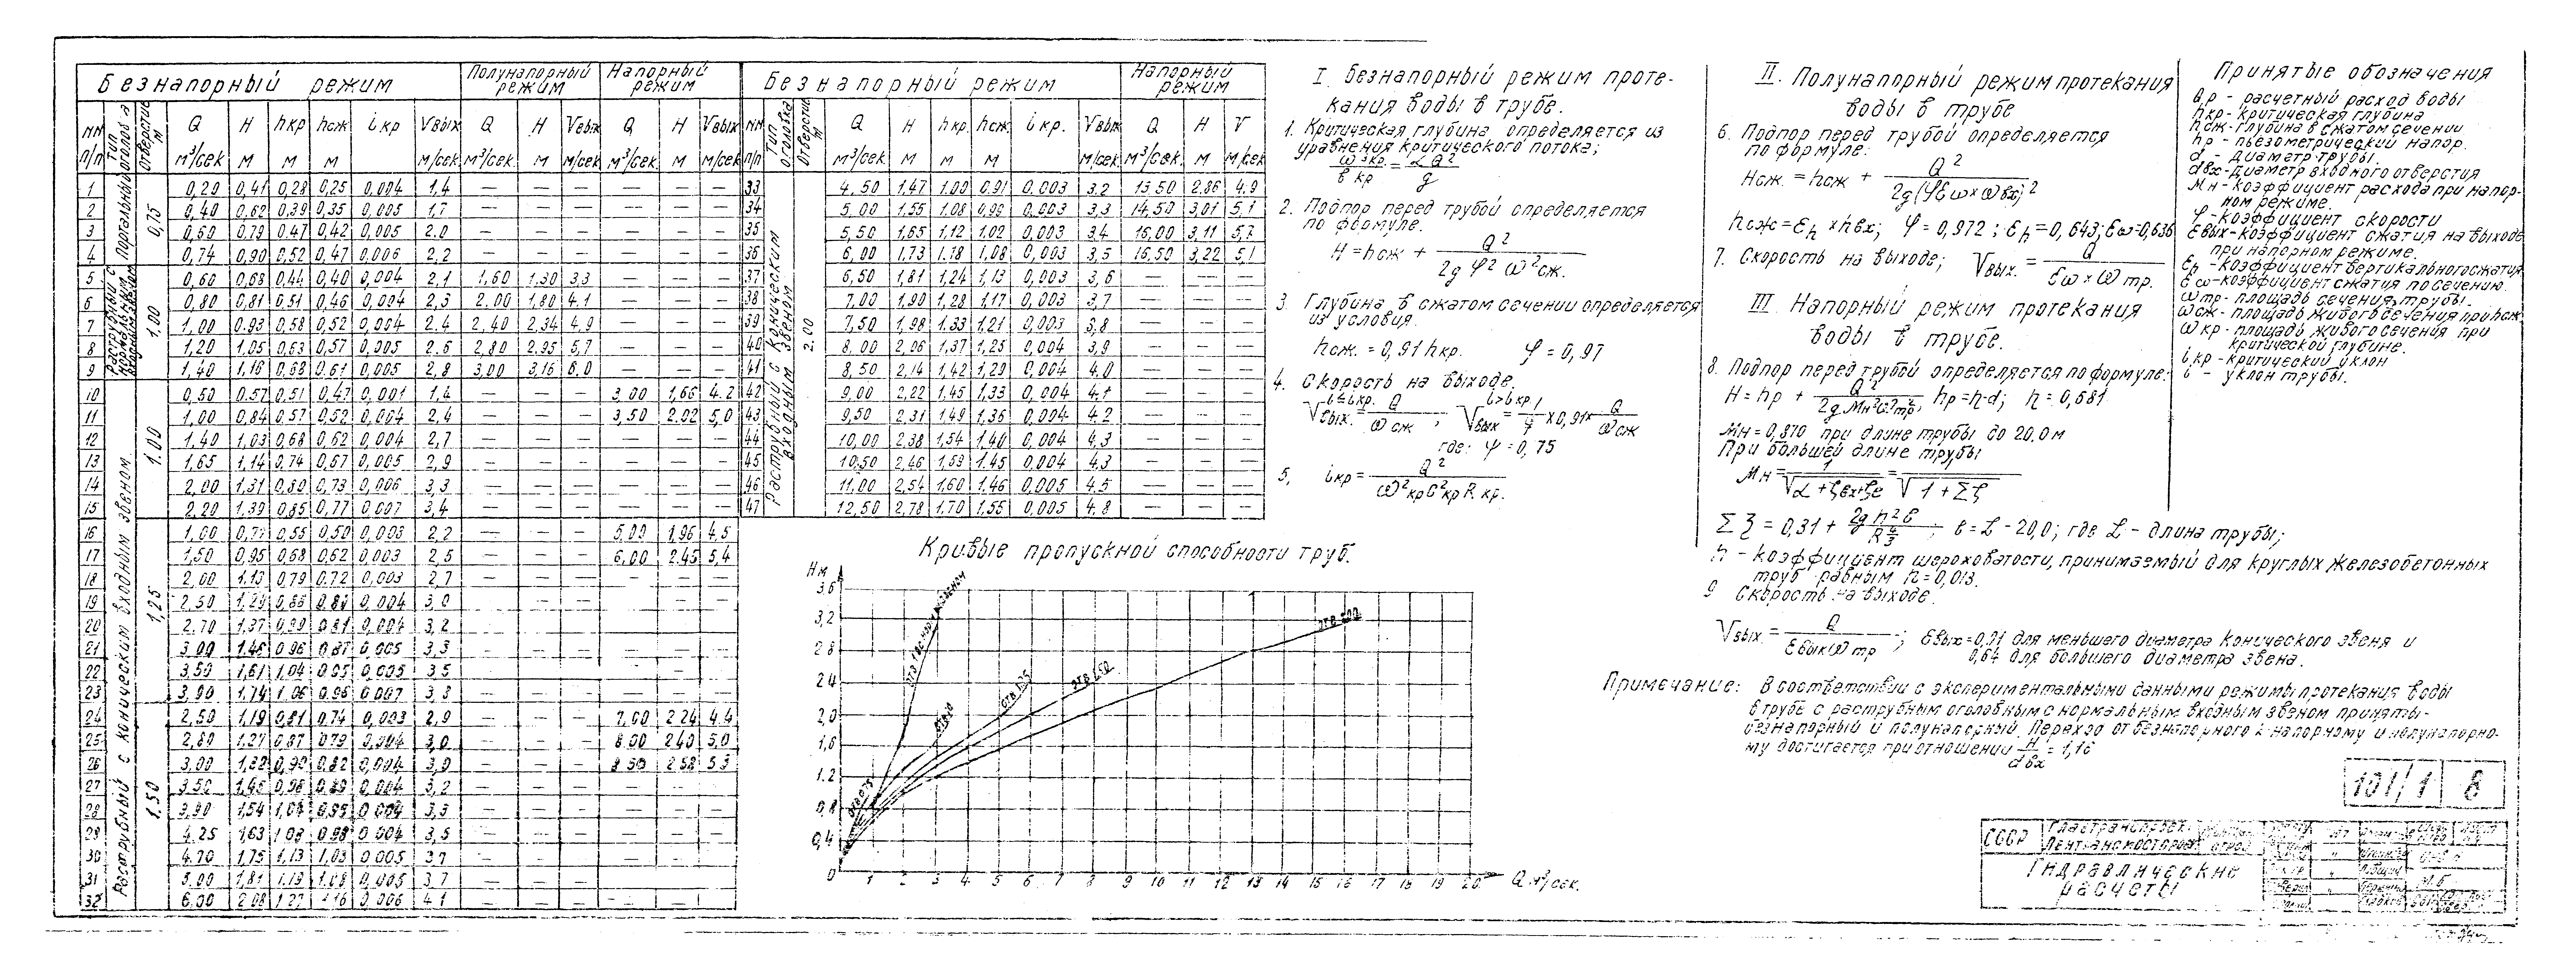 Безнапорный режим | Полунапорный режим | Напорный режим
NN п/п | Тип оголов-а | Отверстие м | Q м³/сек | H м | hкр м | hсж м | iкр | Vвых м/сек | Q м³/сек | H м | Vвых м/сек | Q м³/сек | H м | Vвых м/сек
Портальный 0,75
1 | 0,20 | 0,41 | 0,28 | 0,25 | 0,004 | 1,4 | — | — | — | — | — | —
2 | 0,40 | 0,62 | 0,39 | 0,35 | 0,005 | 1,7 | — | — | — | — | — | —
3 | 0,60 | 0,79 | 0,47 | 0,42 | 0,005 | 2.0 | — | — | — | — | — | —
4 | 0,74 | 0,90 | 0,52 | 0,47 | 0,006 | 2,2 | — | — | — | — | — | —
Раструбный с нормальным 1.00
5 | 0,60 | 0,68 | 0,44 | 0,40 | 0,004 | 2,1 | 1,60 | 1,30 | 3,3 | — | — | —
6 | 0,80 | 0,81 | 0,51 | 0,46 | 0,004 | 2,3 | 2.00 | 1,80 | 4,1 | — | — | —
7 | 1,00 | 0,93 | 0,58 | 0,52 | 0,004 | 2.4 | 2,40 | 2,34 | 4,9 | — | — | —
8 | 1,20 | 1,05 | 0,63 | 0,57 | 0,005 | 2.6 | 2,80 | 2.95 | 5,7 | — | — | —
9 | 1,40 | 1,16 | 0,68 | 0,61 | 0,005 | 2,8 | 3,00 | 3,16 | 6,0 | — | — | —
Раструбный с коническим входным звеном
1.00
10 | 0,50 | 0,57 | 0,51 | 0,47 | 0,001 | 1,4 | — | — | — | 3,00 | 1,66 | 4.2
11 | 1,00 | 0,84 | 0,57 | 0,52 | 0,004 | 2,4 | — | — | — | 3,50 | 2.02 | 5,0
12 | 1,40 | 1,03 | 0,68 | 0,62 | 0,004 | 2,7 | — | — | — | — | — | —
13 | 1,65 | 1,14 | 0,74 | 0,67 | 0,005 | 2,9 | — | — | — | — | — | —
14 | 2,00 | 1,31 | 0,80 | 0,73 | 0,006 | 3,3 | — | — | — | — | — | —
15 | 2,20 | 1,39 | 0,85 | 0,77 | 0,007 | 3,4 | — | — | — | — | — | —
1,25
16 | 1,00 | 0,77 | 0,55 | 0,50 | 0,003 | 2,2 | — | — | — | 5,00 | 1,96 | 4.5
17 | 1,50 | 0,95 | 0,68 | 0,62 | 0,003 | 2,5 | — | — | — | 6,00 | 2.45 | 5,4
18 | 2,00 | 1,13 | 0,79 | 0.72 | 0,003 | 2,7 | — | — | — | — | — | —
19 | 2.50 | 1,29 | 0,004 | 3,0
20 | 2.70 | 1,37 | 0,81 | 0,004 | 3,2
21 | 3,00 | 1,46 | 0,96 | 0,87 | 0,005 | 3,3
22 | 3,50 | 1,61 | 1,04 | 0,95 | 0,005 | 3,5
23 | 3,90 | 1,74 | 1,06 | 0,96 | 0,007 | 3,8
1,50
24 | 2,50 | 1,19 | 0,81 | 0,74 | 0,003 | 2,9 | — | — | — | 7,00 | 2.24 | 4.4
25 | 2,80 | 1,27 | 0,87 | 0,79 | 0,004 | 3,0 | — | — | — | 8.00 | 2,40 | 5,0
26 | 3,00 | 1,32 | 0,90 | 0,82 | 0,004 | 3,0 | — | — | — | 8.50 | 2,58 | 5.3
27 | 3,50 | 1,45 | 0,98 | 0,89 | 0,004 | 3,2
28 | 3,90 | 1,54 | 1,04 | 0,95 | 0,004 | 3,3
29 | 4.25 | 1,63 | 1,08 | 0,98 | 0,004 | 3,5
30 | 4.70 | 1,75 | 1,13 | 1,03 | 0,005 | 3,7
31 | 5.00 | 1,81 | 1,19 | 1,08 | 0,005 | 3,7
32 | 6,00 | 2,08 | 1,27 | 1,16 | 0,006 | 4,1
Безнапорный режим | Напорный режим
NN п/п | Тип оголовка | Отверстие м | Q м³/сек | H м | hкр. м | hсж. м | iкр. | Vвых м/сек | Q м³/сек | H м | V м/сек
Раструбный с коническим входным звеном 2.00
33 | 4.50 | 1,47 | 1.00 | 0,91 | 0,003 | 3,2 | 13.50 | 2,86 | 4.9
34 | 5,00 | 1,55 | 1,08 | 0,99 | 0,003 | 3,3 | 14,50 | 3,01 | 5,1
35 | 5,50 | 1,65 | 1,12 | 1,02 | 0,003 | 3,4 | 16,00 | 3,11
36 | 6,00 | 1,73 | 1,18 | 1,08 | 0,003 | 3,5 | 16,50 | 3,22 | 5,1
37 | 6,50 | 1,81 | 1,24 | 1,13 | 0,003 | 3,6 | — | — | —
38 | 7,00 | 1,90 | 1,28 | 1,17 | 0,003 | 3,7 | — | — | —
39 | 7,50 | 1,98 | 1,33 | 1,21 | 0,003 | 3,8 | — | — | —
40 | 8,00 | 2,06 | 1,37 | 1,25 | 0,004 | 3,9 | — | — | —
41 | 8,50 | 2,14 | 1,42 | 1,29 | 0,004 | 4,0 | — | — | —
42 | 9,00 | 2,22 | 1,45 | 1,33 | 0,004 | 4,1 | — | — | —
43 | 9,50 | 2,31 | 1,49 | 1,36 | 0,004 | 4,2 | — | — | —
44 | 10,00 | 2,38 | 1,54 | 1,40 | 0,004 | 4,3 | — | — | —
45 | 10,50 | 2,46 | 1,59 | 1,45 | 0,004 | 4,3 | — | — | —
46 | 11,00 | 2,54 | 1,60 | 1,46 | 0,005 | 4,5 | — | — | —
47 | 12,50 | 2,78 | 1,70 | 1,55 | 0,005 | 4,8 | — | — | —
Кривые пропускной способности труб.
Hм
3,6
3,2
2,8
2,4
2,0
1,6
1.2
0,8
0,4
0 1 2 3 4 5 6 7 8 9 10 11 12 13 14 15 16 17 18 19 20 Q м³/сек.
отв 0.75
отв 1.0
отв 1.25
отв 1.50
отв 2.00
I. Безнапорный режим проте-
кания воды в трубе.
1. Критическая глубина определяется из
уравнения критического потока;
ω³кр / Bкр = αQ² / g
2. Подпор перед трубой определяется
по формуле.
H = hсж + Q² / 2g φ² ω²сж.
3 Глубина в сжатом сечении определяется
из условия.
hсж. = 0,91 hкр. φ = 0,97
4. Скорость на выходе.
i≤iкр. Vвых. = Q / ωсж ; i>iкр Vвых = 1/ψ × 0,91 × Q / ωсж
где: ψ = 0,75
5, iкр = Q² / ω²кр C²кр Rкр.
II. Полунапорный режим протекания
воды в трубе
6. Подпор перед трубой определяется
по формуле:
Hсж. = hсж + Q² / 2g(φ εω × ωвх)²
hсж = εh × hвх; φ = 0,972; εh = 0,643; εω = 0,636
7. Скорость на выходе; Vвых. = Q / εω × ωтр.
III. Напорный режим протекания
воды в трубе.
8. Подпор перед трубой определяется по формуле:
H = hр + Q² / 2g Мн² ω²тр ; hр = η·d; η = 0,681
Мн = 0,870 при длине трубы до 20,0 м
При большей длине трубы
Мн = 1 / √α + ζвх + ζe = 1 / √1 + Σζ
Σζ = 0,31 + 2g n² ℓ / R 4/3 ; ℓ = L - 20,0; где L - длина трубы;
n - коэффициент шероховатости, принимаемый для круглых железобетонных
труб равным n = 0,013.
9 Скорость на выходе.
Vвых. = Q / εвых ωтр ; εвых = 0,91 для меньшего диаметра конического звена и
0,64 для большего диаметра звена.
Примечание: В соответствии с экспериментальными данными режимы протекания воды
в трубе с раструбным оголовным с нормальным входным звеном приняты-
безнапорный и полунапорный. Переход от безнапорного к напорному и полунапорно-
му достигается при отношении H / dвх = 1,16
Принятые обозначения
Qр - расчетный расход воды
hкр - критическая глубина
hсж - глубина в сжатом сечении
hр - пьезометрический напор.
d - диаметр трубы.
dвх - диаметр входного отверстия
Мн - коэффициент расхода при напор-
ном режиме.
φ - коэффициент скорости
εвых - коэффициент сжатия на выходе
при напорном режиме.
εh - коэффициент вертикального сжатия
εω - коэффициент сжатия по сечению.
ωтр - площадь сечения трубы.
ωсж - площадь живого сечения при hсж
ωкр - площадь живого сечения при
критической глубине.
iкр - критический уклон
i - уклон трубы.
101/1 | 8
СССР | Главтранспроект
Лентрансмостпроект
Гидравлические
расчеты